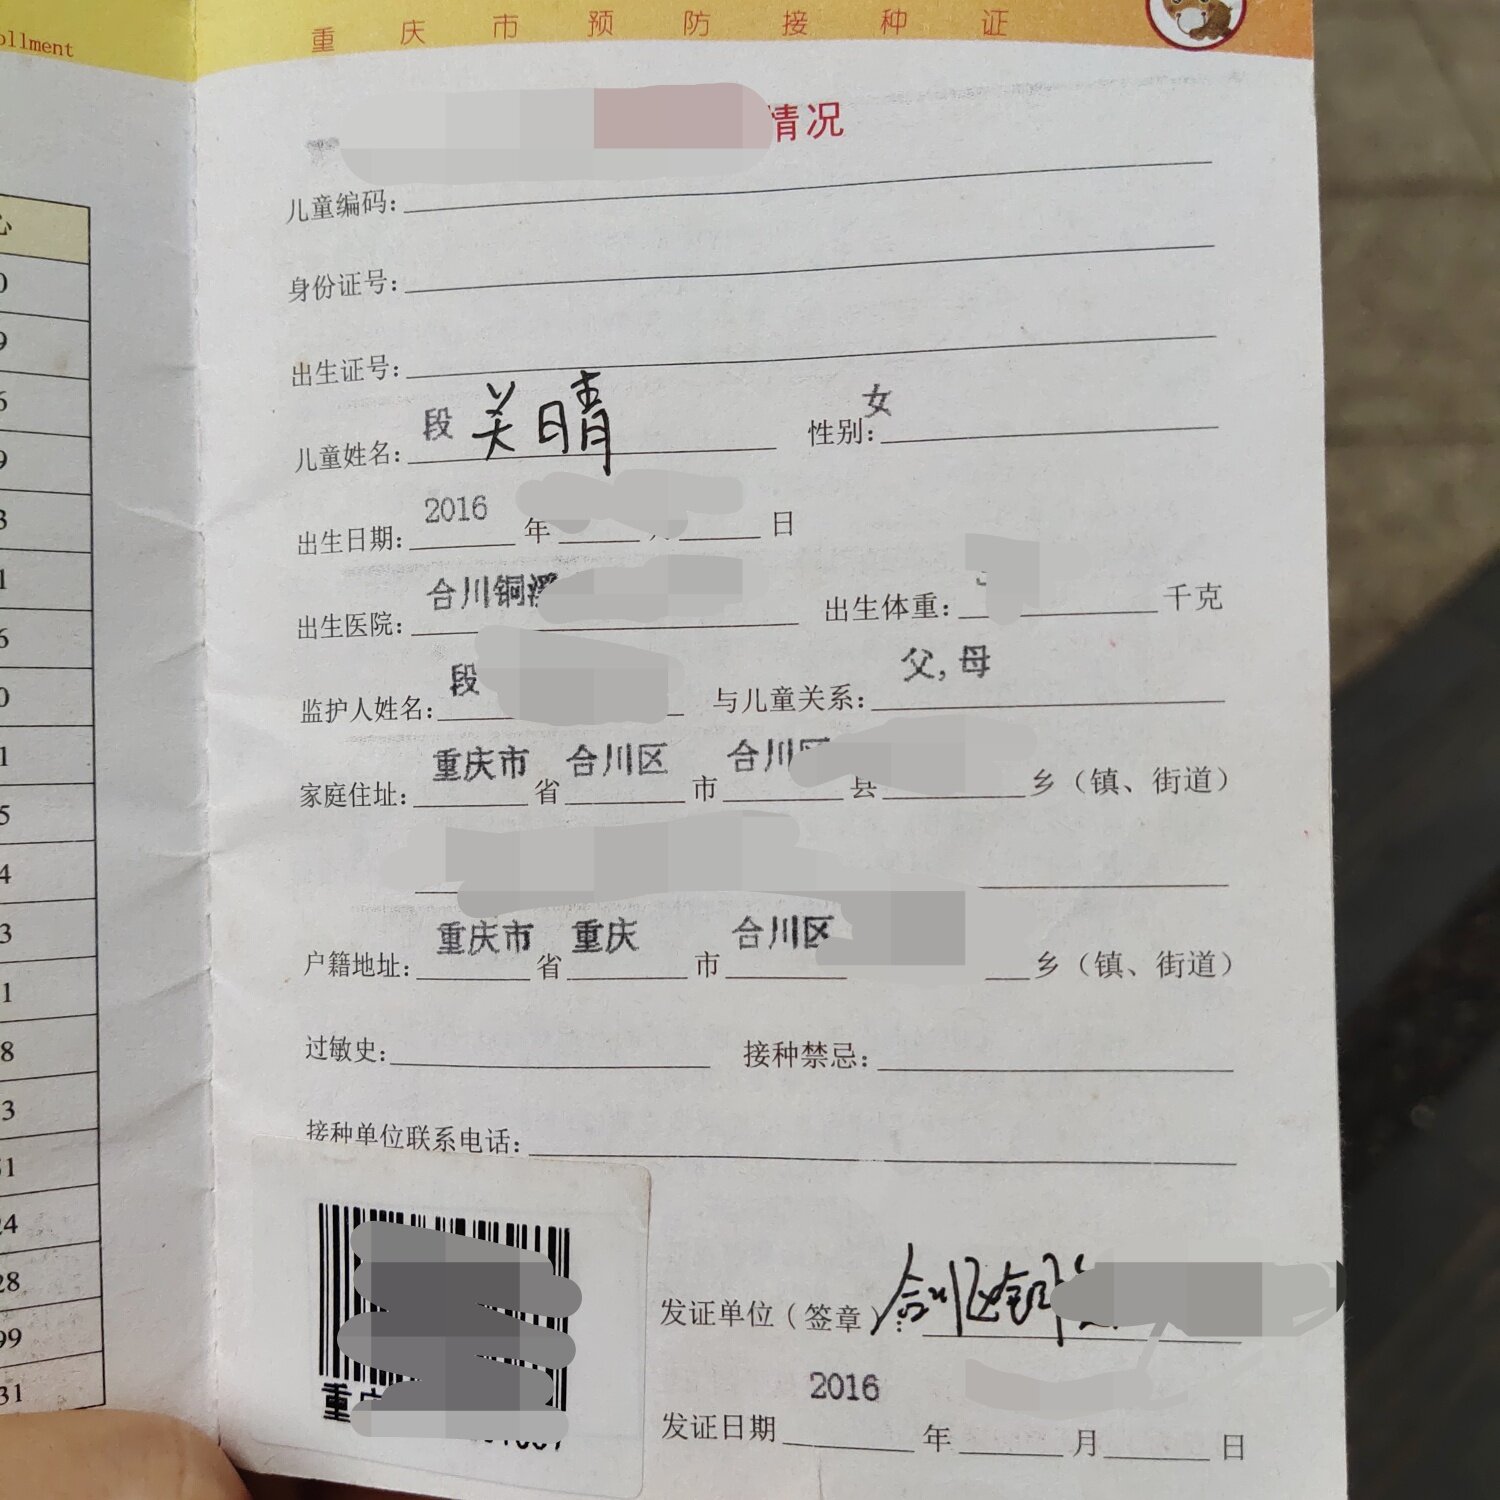 ollment
重庆市预防接种证
情况
儿童编码:
身份证号:
出生证号:
儿童姓名: 段美晴 性别: 女
出生日期: 2016 年 日
出生医院: 合川铜溪 出生体重: 千克
监护人姓名: 段 与儿童关系: 父,母
家庭住址: 重庆市 省 合川区 市 合川区 县 乡（镇、街道）
户籍地址: 重庆市 省 重庆 市 合川区 乡（镇、街道）
过敏史: 接种禁忌:
接种单位联系电话:
发证单位（签章）: 合川区
重庆
发证日期 2016 年 月 日
心
0
9
6
9
3
1
6
0
1
5
4
3
1
8
3
51
24
28
99
31